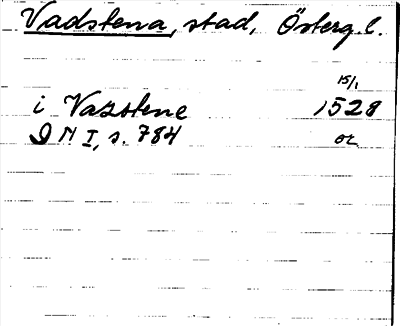 Vadstena, stad, Österg. l.
15/1
i Vazstene 1528
D N I, s. 784 or